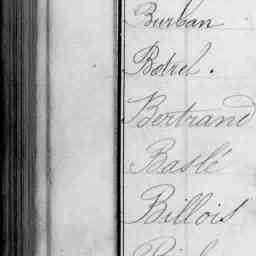 Burban
Botrel.
Bertrand
Baslé
Billois